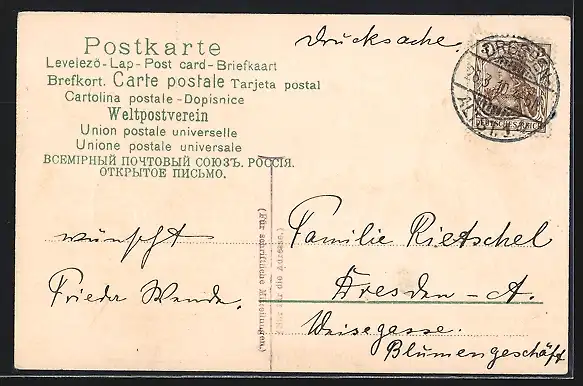 Postkarte
Levelezö-Lap-Post card-Briefkaart
Brefkort. Carte postale Tarjeta postal
Cartolina postale-Dopisnice
Weltpostverein
Union postale universelle
Unione postale universale
ВСЕМІРНЫЙ ПОЧТОВЫЙ СОЮЗЪ. РОССІЯ.
ОТКРЫТОЕ ПИСЬМО.
Drucksache.
DRESDEN
DEUTSCHES REICH
wünscht
Frieda Wende.
(Für schriftliche Mitteilungen.)
(Nur für die Adresse.)
Familie Rietschel
Dresden-A.
Weisegasse.
Blumengeschäft